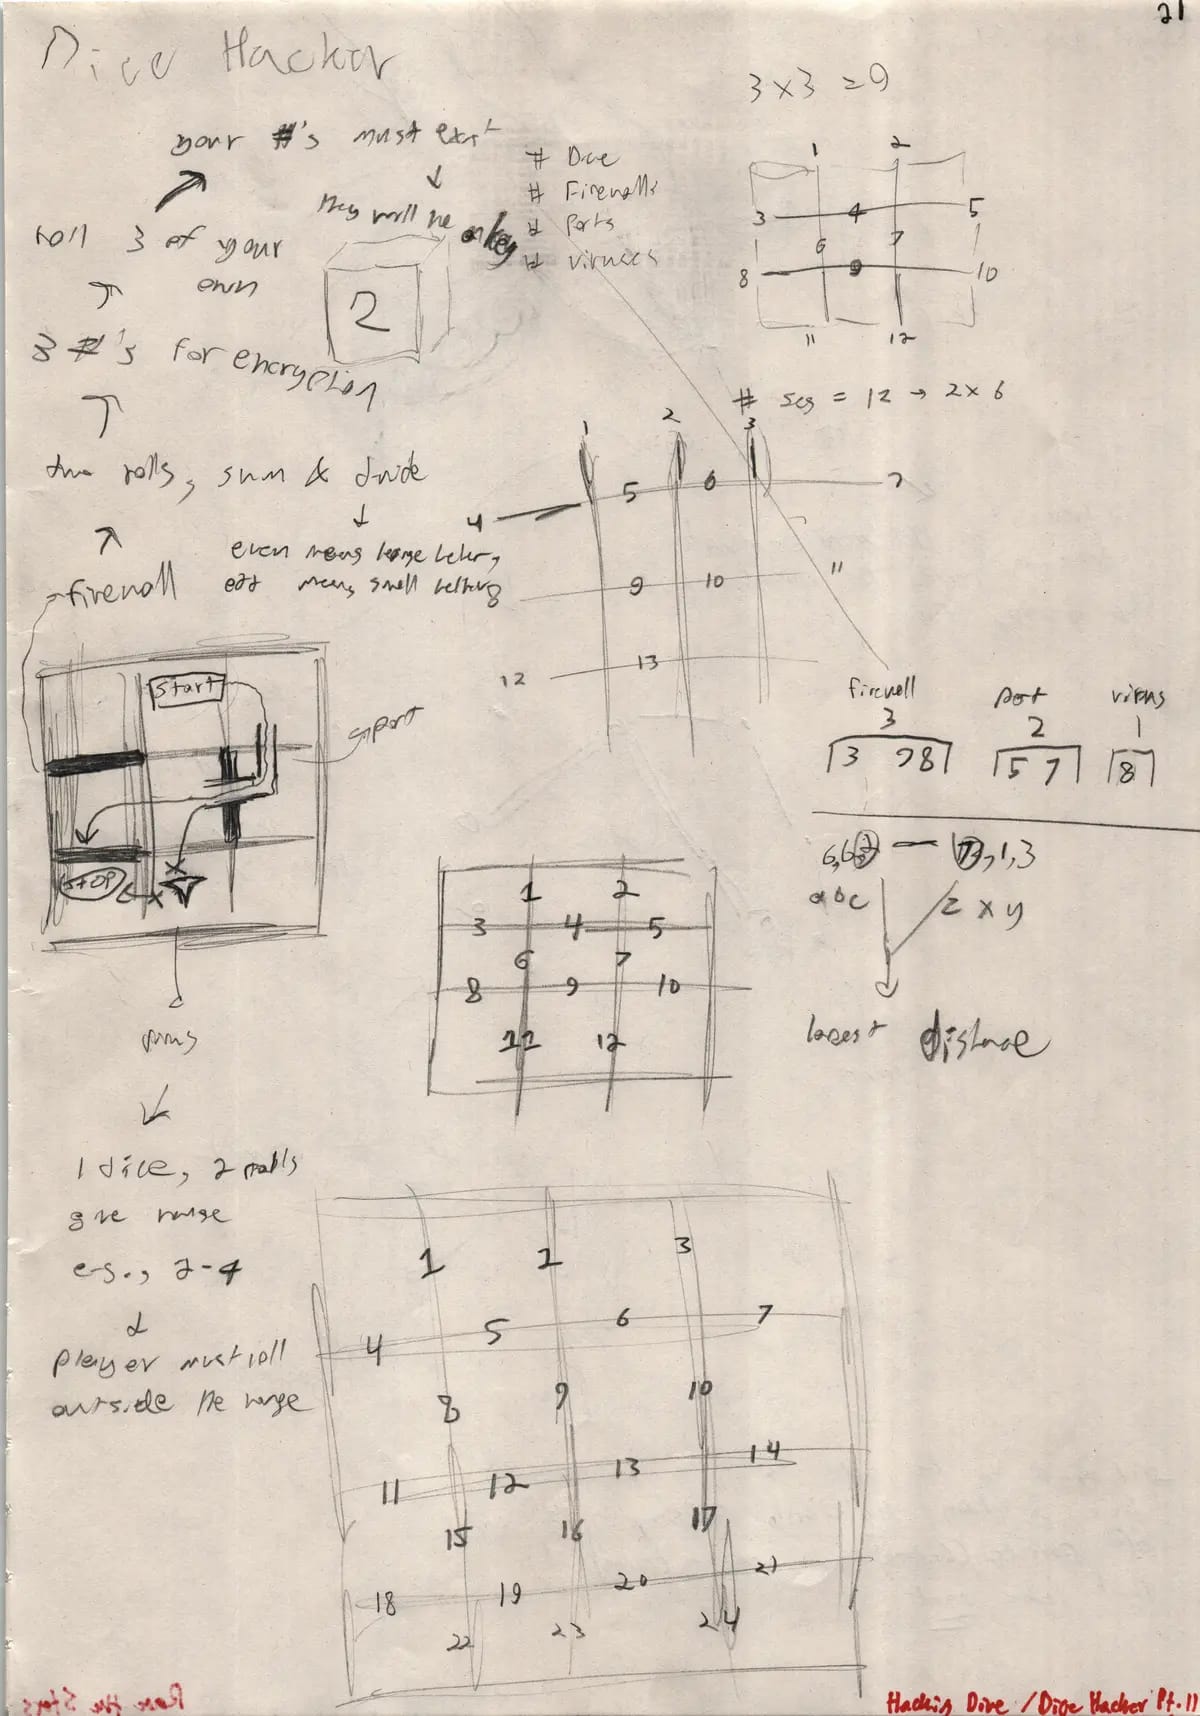 21
Dice Hacker
3 x 3 = 9
your #'s must exist
they will be
roll 3 of your
own
3 #'s for encryption
two rolls, sum & divide
even means large
odd means small
firewall
2
# Dice
# Firewalls
# Ports
# viruses
1 2
3 4 5
6 7
8 9 10
11 12
# seg = 12 → 2 x 6
1 2 3
4 5 6 7
8 9 10 11
12 13
start
port
STOP
firewall port virus
3 2 1
3 7 8 5 7 8
6, 6, 2 — 1, 3
a b c z x y
lowest distance
1 2
3 4 5
6 7
8 9 10
11 12
virus
1 dice, 2 rolls
give range
e.g., 2-4
player must roll
outside the range
1 2 3
4 5 6 7
8 9 10
11 12 13 14
15 16 17
18 19 20 21
22 23 24
Race the Stars
Hacking Dice / Dice Hacker Pt. II